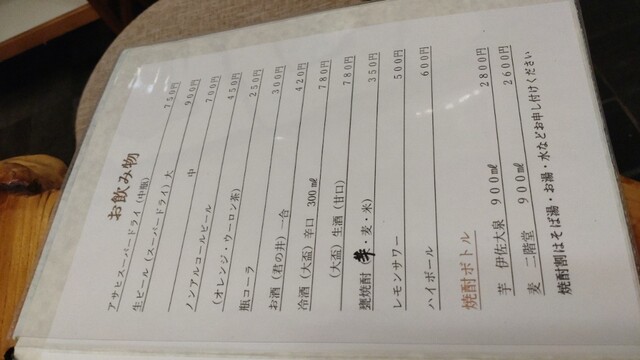 お飲み物
アサヒスーパードライ(中瓶) 750円
生ビール(スーパードライ)大 900円
中 700円
ノンアルコールビール 450円
(オレンジ・ウーロン茶) 250円
瓶コーラ 300円
お酒(君の井)一合 420円
冷酒(大盃)辛口 300㎖ 780円
(大盃)生酒(甘口) 780円
甕焼酎(・麦・米) 350円
レモンサワー 500円
ハイボール 600円
焼酎ボトル
芋 伊佐大泉 900㎖ 2800円
麦 二階堂 900㎖ 2600円
焼酎割はそば湯・お湯・水などお申し付けください